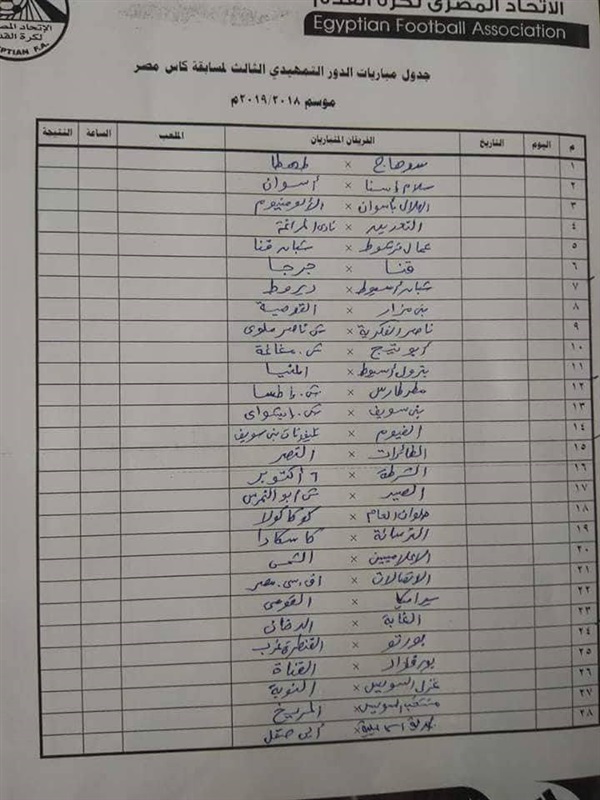 الاتحاد المصرى لكرة القدم
Egyptian Football Association
الإتحاد المصرى
لكرة القدم
EGYPTIAN F.A.
جدول مباريات الدور التمهيدي الثالث لمسابقة كاس مصر
موسم ٢٠١٩/٢٠١٨م
م اليوم التاريخ الفريقان المتباريان الملعب الساعة النتيجة
١ سوهاج × طهطا
٢ سلام إسنا × أسوان
٣ الهلال بأسوان × الألومنيوم
٤ التحرير × نادى المراغة
٥ عمال نرشوط × شبان قنا
٦ قنا × جرجا
٧ شبان أسيوط × ديروط
٨ بنى مزار × القوصية
٩ ناصر الفكرية × ش ناصر ملوى
١٠ أبو تيج × ش. مغاغة
١١ بترول أسيوط × المنيا
١٢ مطرطارس × ش. إطسا
١٣ بنى سويف × ش. ابشواى
١٤ الفيوم × تليفونات بنى سويف
١٥ الطائرات × النصر
١٦ الشرطة × ٦ أكتوبر
١٧ الصيد × ش أبو النمرس
١٨ حلوان العام × كوكاكولا
١٩ الترسانة × كاسكادا
٢٠ الاعلاميين × الشمس
٢١ الاتصالات × اف. سى. مصر
٢٢ سيراميكا × القومى
٢٣ الغابة × الدخان
٢٤ بورتو × القنطرة غرب
٢٥ بورفؤاد × القناة
٢٦ غزل السويس × النوبة
٢٧ منتخب السويس × المريخ
٢٨ × أبى صقل